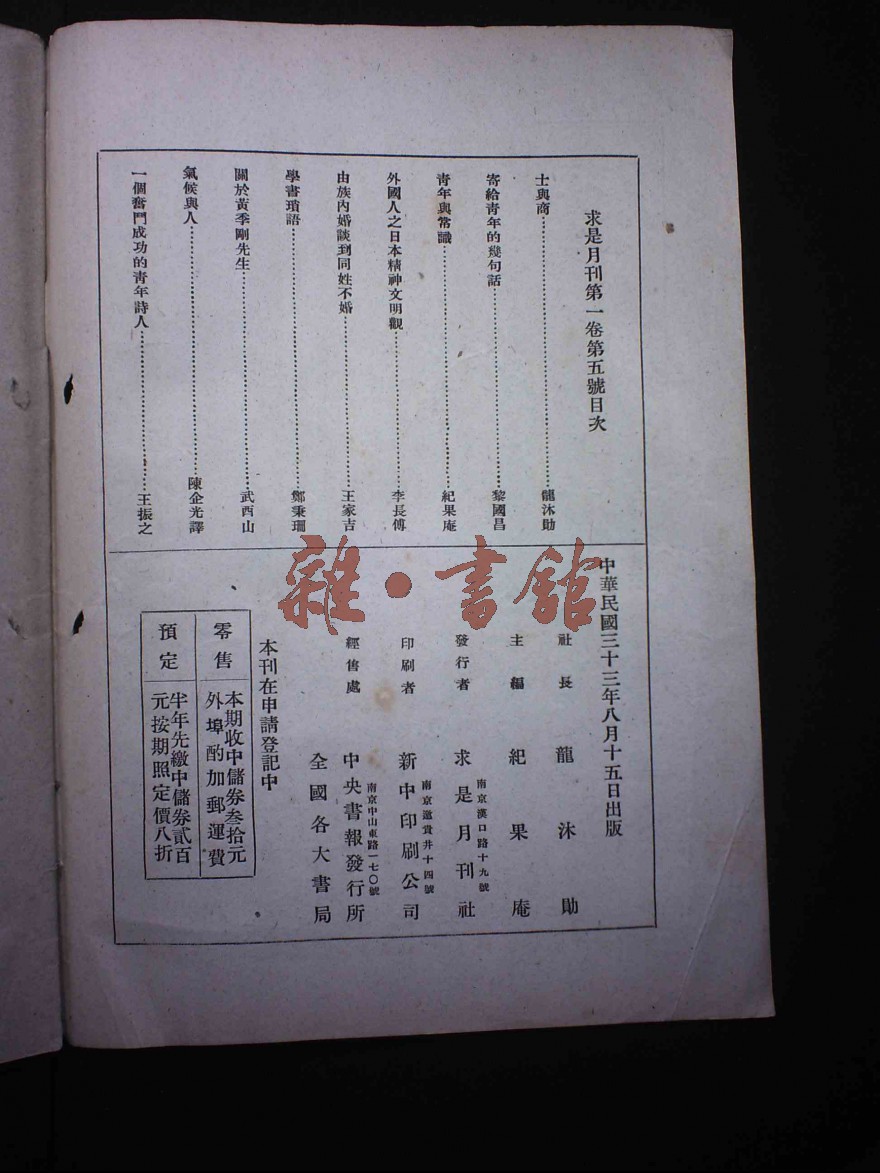 求是月刊第一卷第五號目次
士與商……龍沐勛
寄給青年的幾句話……黎國昌
青年與常識……紀果庵
外國人之日本精神文明觀……李長傅
由族內婚談到同姓不婚……王家吉
學書瑣語……鄭秉珊
關於黃季剛先生……武酉山
氣候與人……陳企光譯
一個奮鬥成功的青年詩人……王振之
中華民國三十三年八月十五日出版
社長 龍沐勛
主編 紀果庵
南京漢口路十九號
發行者 求是月刊社
南京邀貴井十四號
印刷者 新中印刷公司
南京中山東路一七〇號
經售處 中央書報發行所
全國各大書局
本刊在申請登記中
零售
本期收中儲券叁拾元
外埠酌加郵運費
預定
半年先繳中儲券貳百
元按期照定價八折
雜·書館